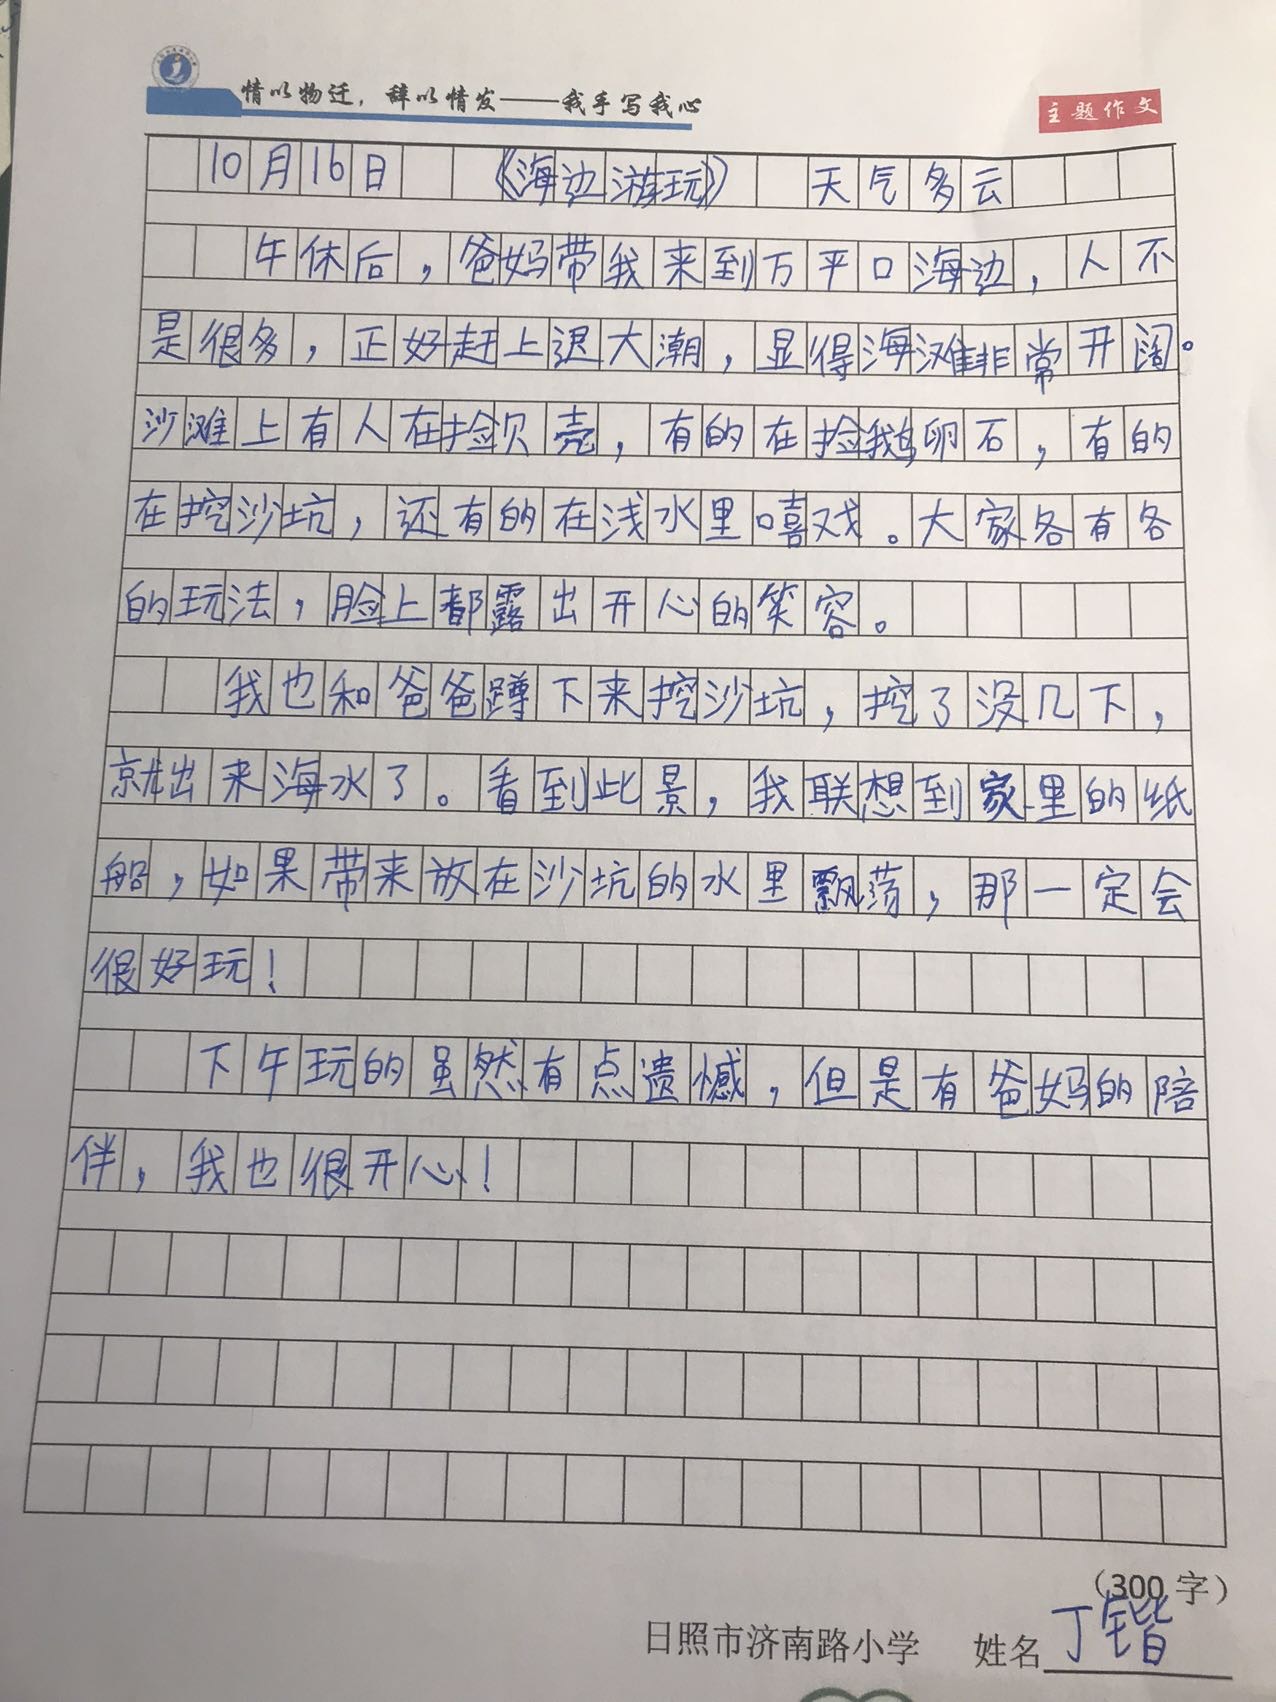 情以物迁，辞以情发——我手写我心
主题作文
10月16日 《海边游玩》 天气多云
午休后，爸妈带我来到万平口海边，人不
是很多，正好赶上退大潮，显得海滩非常开阔。
沙滩上有人在捡贝壳，有的在捡鹅卵石，有的
在挖沙坑，还有的在浅水里嘻戏。大家各有各
的玩法，脸上都露出开心的笑容。
我也和爸爸蹲下来挖沙坑，挖了没几下，
就出来海水了。看到此景，我联想到家里的纸
船，如果带来放在沙坑的水里飘荡，那一定会
很好玩！
下午玩的虽然有点遗憾，但是有爸妈的陪
伴，我也很开心！
（300字）
日照市济南路小学 姓名丁锴